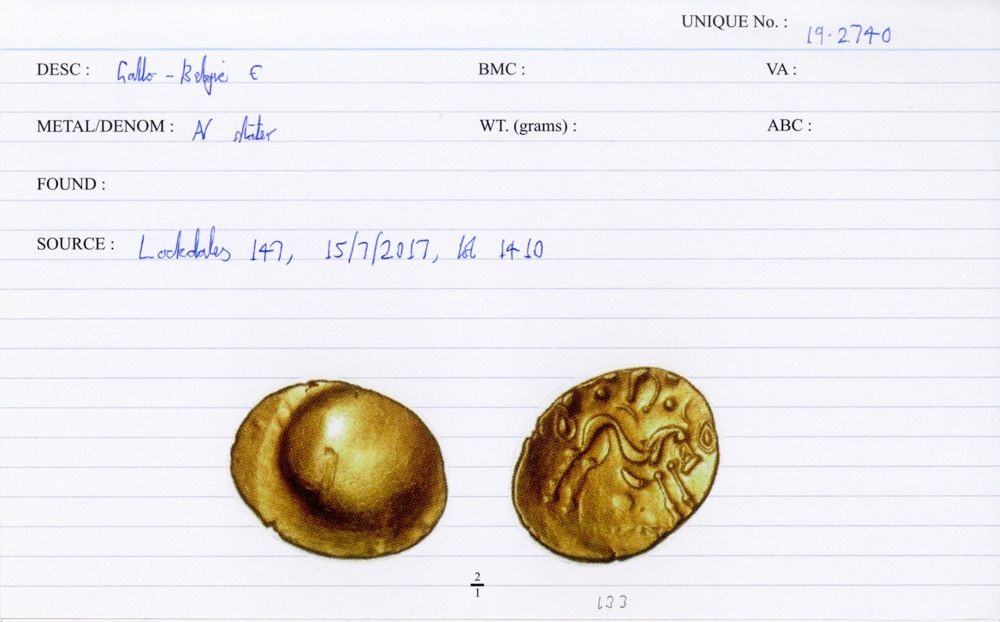 UNIQUE No. : 19.2740
DESC : Gallo-Belgic E BMC : VA :
METAL/DENOM : AV stater WT. (grams) : ABC :
FOUND :
SOURCE : Lockdales 147, 15/7/2017, lot 1410
2
1
133